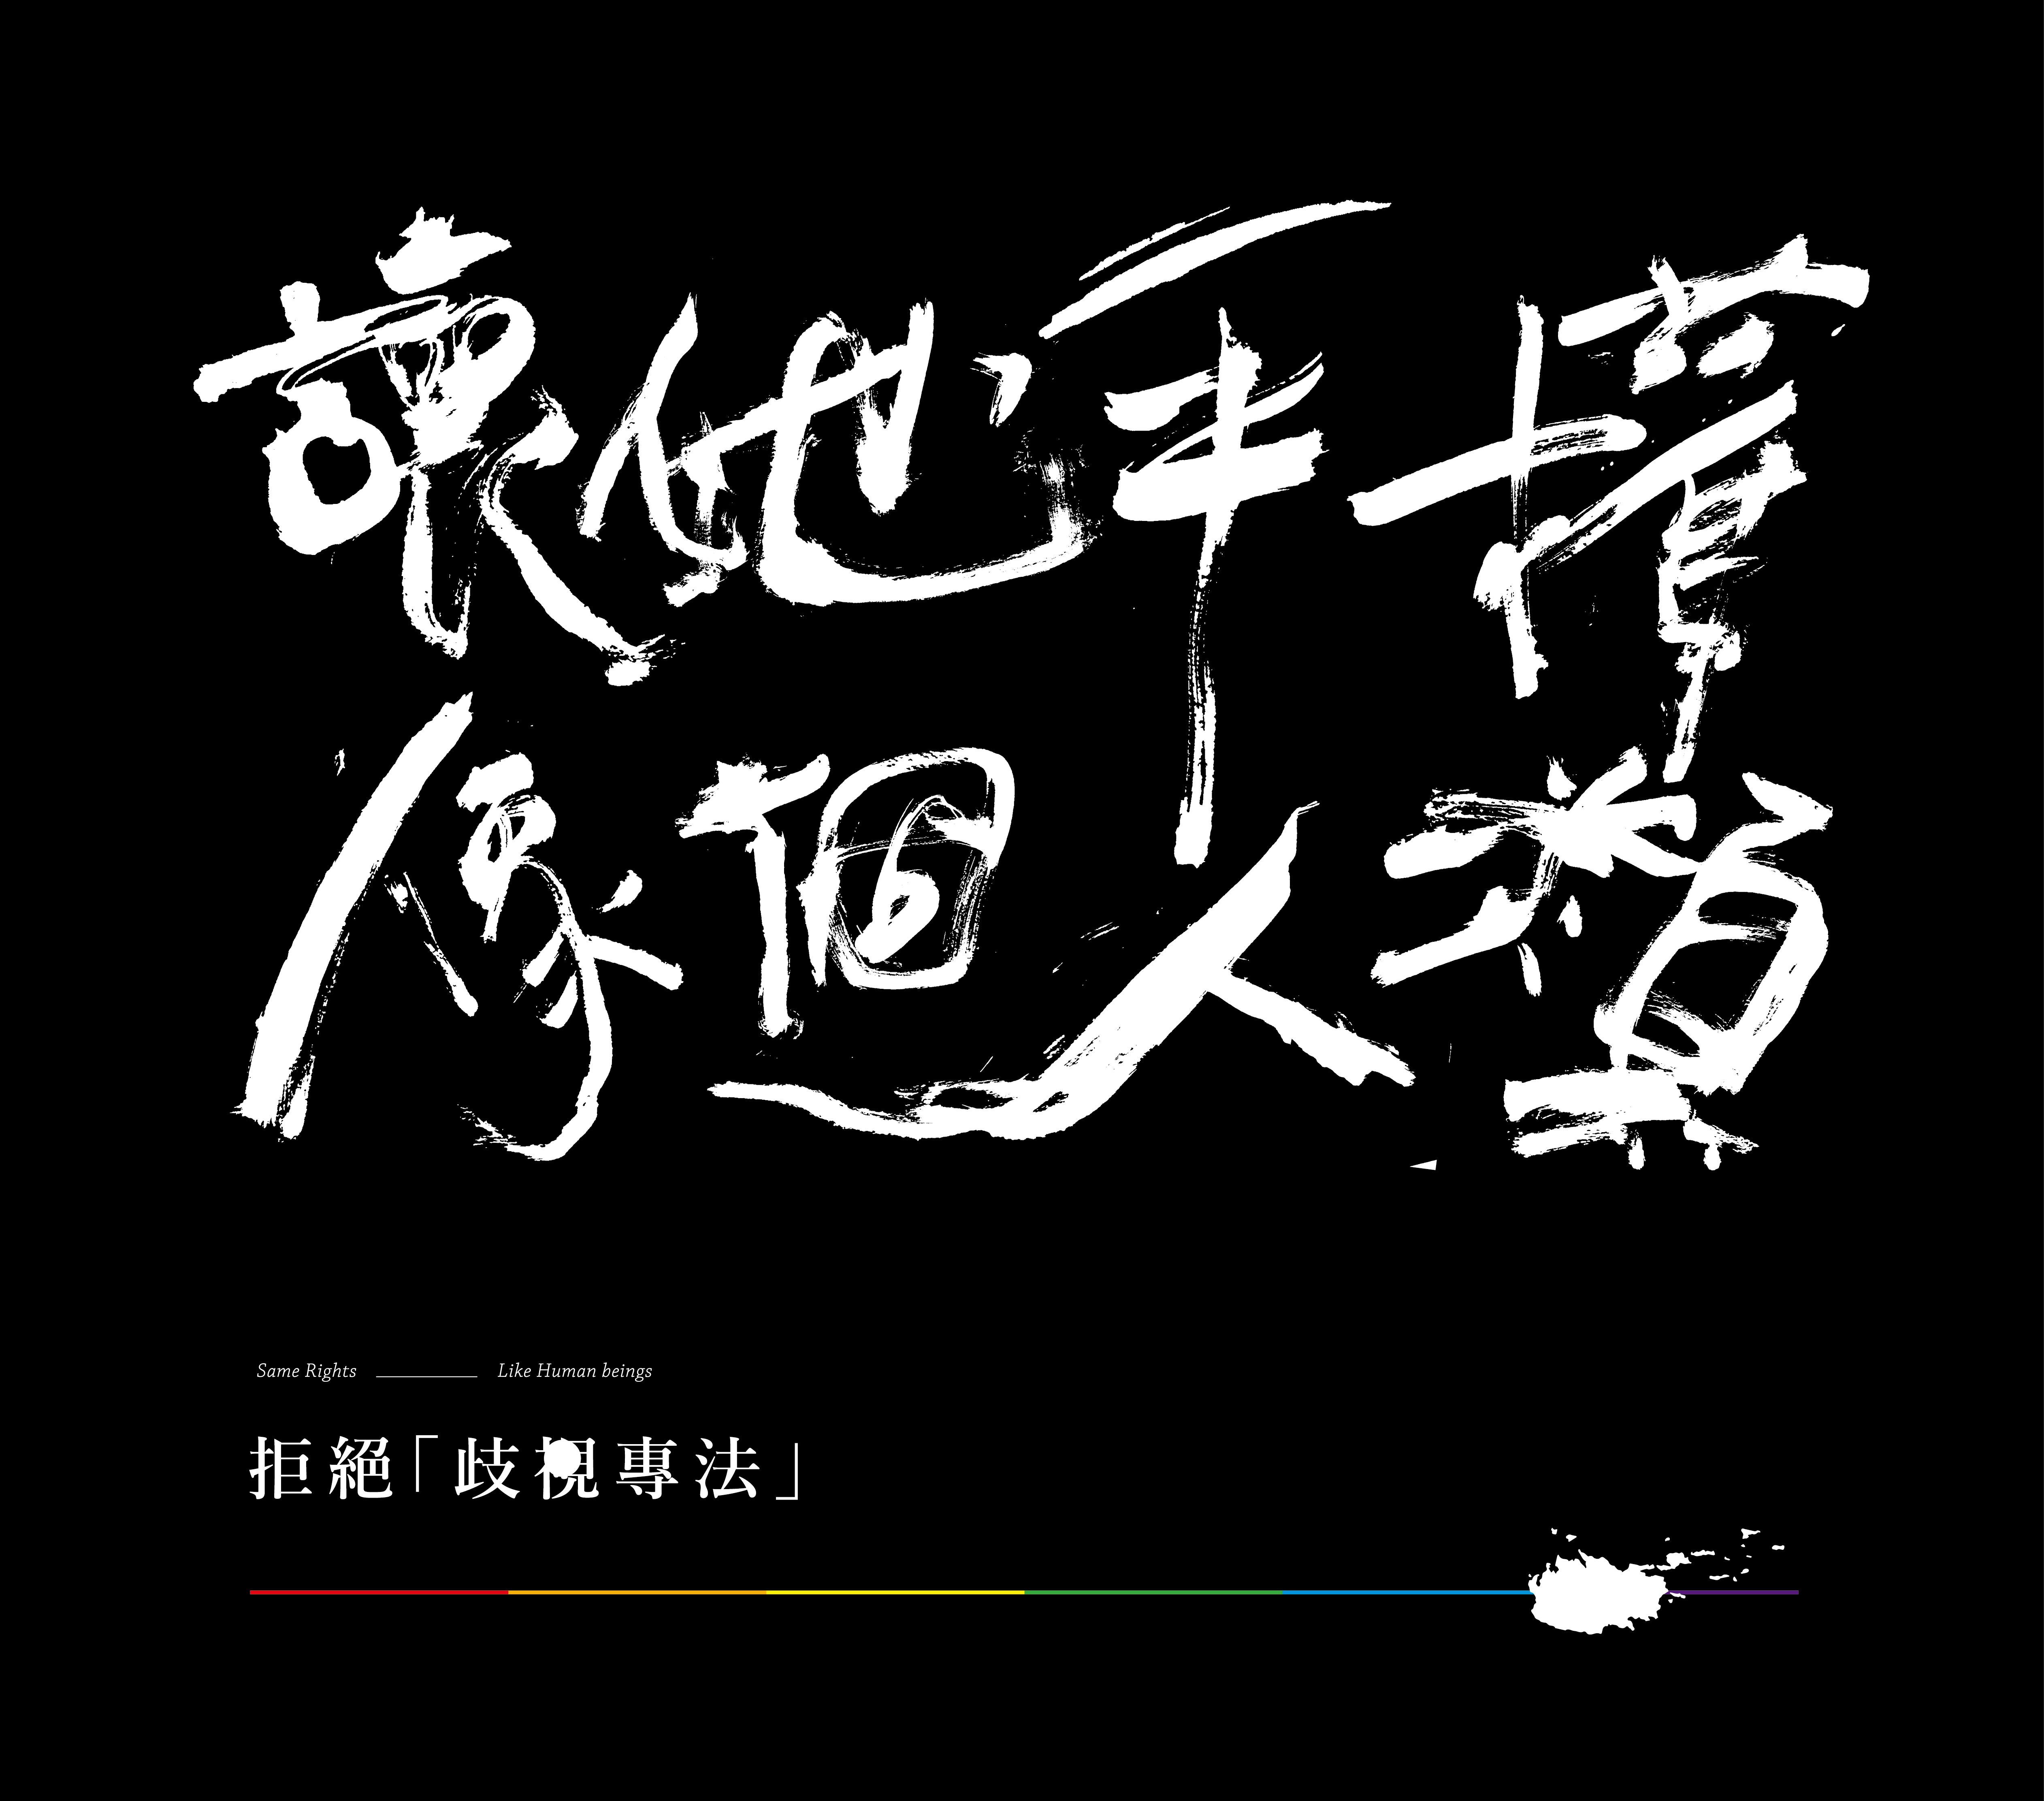 讓平權
像個人類
Same Rights Like Human beings
拒絕「歧視專法」